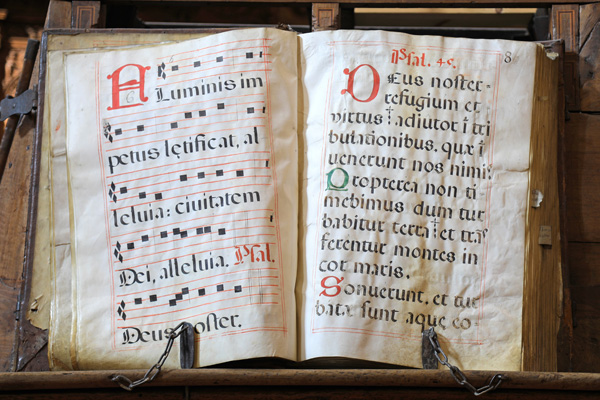 A Luminis im
petus lętificat, al
leluia: ciuitatem
Dei, alleluia. Psal.
Deus noster.
Psal. 45. 8
DEus noster-
refugium et
virtus † adiutor ī tri
bulationibus, quæ ī
uenerunt nos nimis.
Propterea non ti
mebimus dum tur
babitur terra † et trās
ferentur montes in
cor maris.
Sonuerunt, et tur
batæ sunt aquę eo-